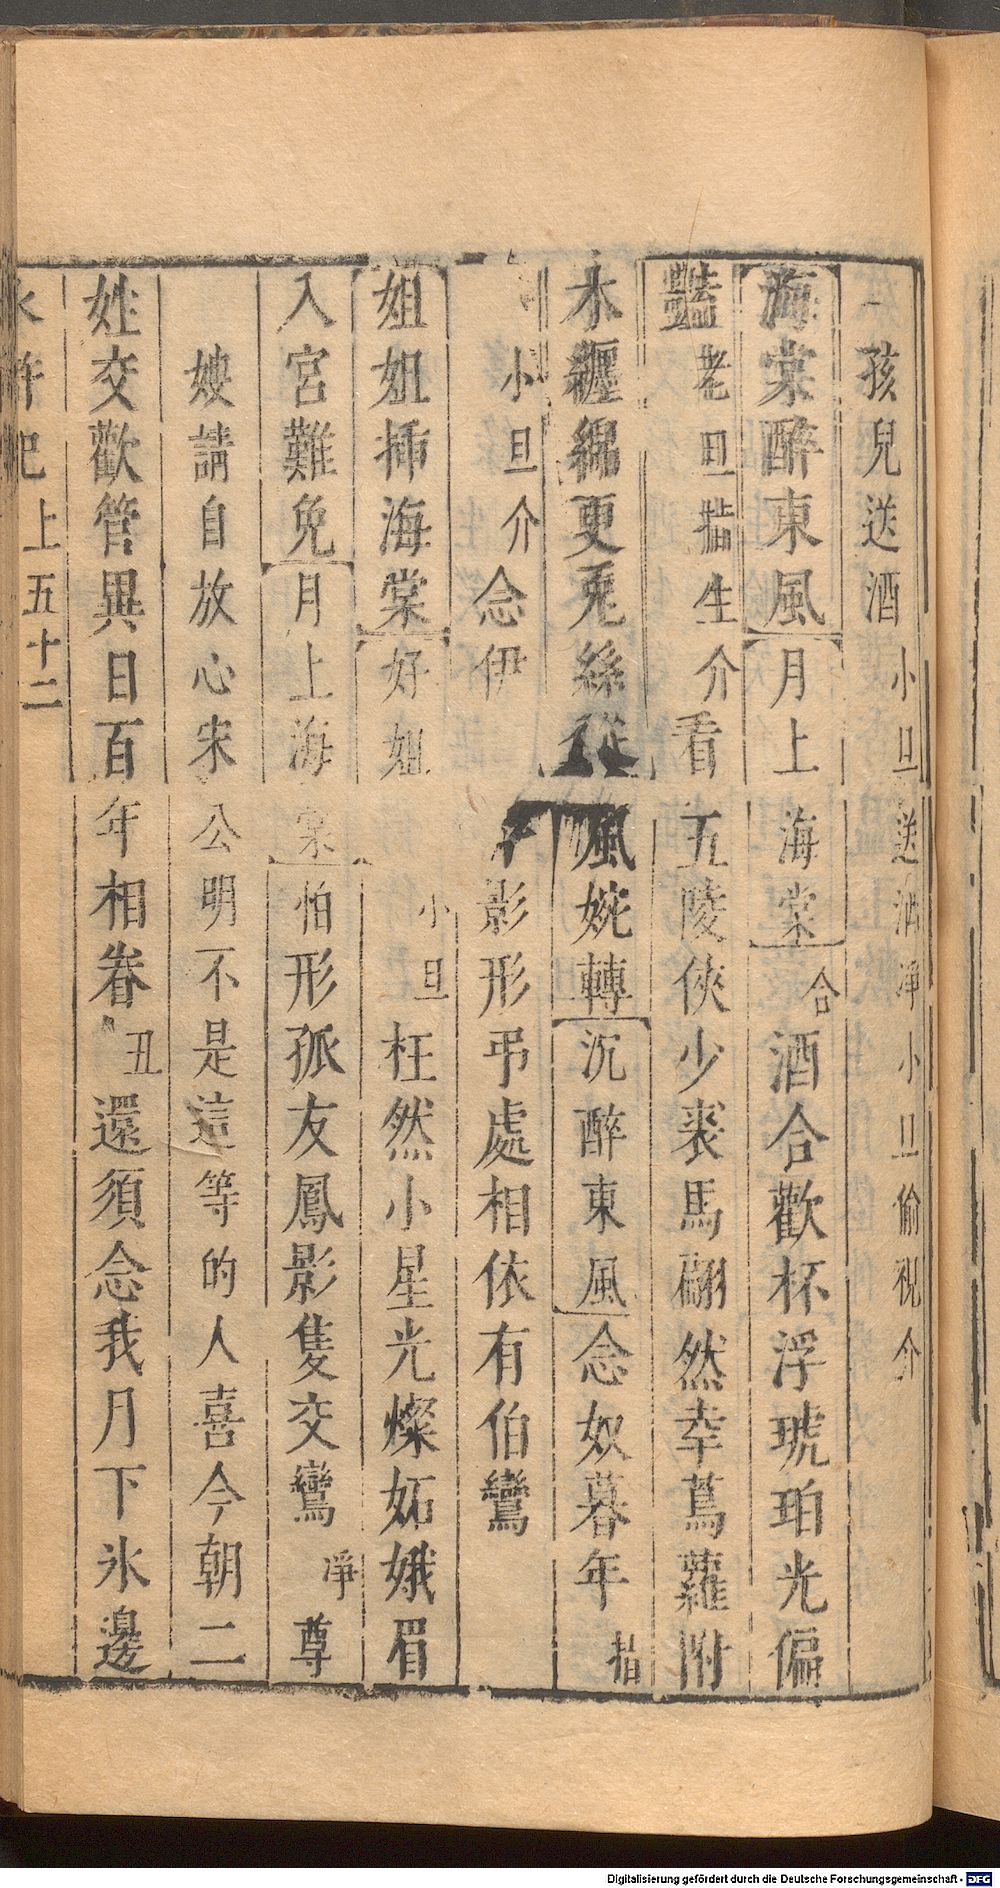 孩兒送酒小旦送酒凈小旦偷視介
海棠醉東風月上海棠合酒合歡杯浮琥珀光偏
豔老旦指生介看五陵俠少裘馬翩然幸蔦蘿附
木纏綿更兎絲從風婉轉沉醉東風念奴暮年指
小旦介念伊影形弔處相依有伯鸞
姐姐揷海棠好姐小旦枉然小星光燦妬娥眉
入宮難免月上海棠怕形孤友鳳影隻交鸞凈尊
嫂請自放心宋公明不是這等的人喜今朝二
姓交歡管異日百年相眷丑還須念我月下氷邊
水許記上五十二
Digitalisierung gefördert durch die Deutsche Forschungsgemeinschaft - DFG